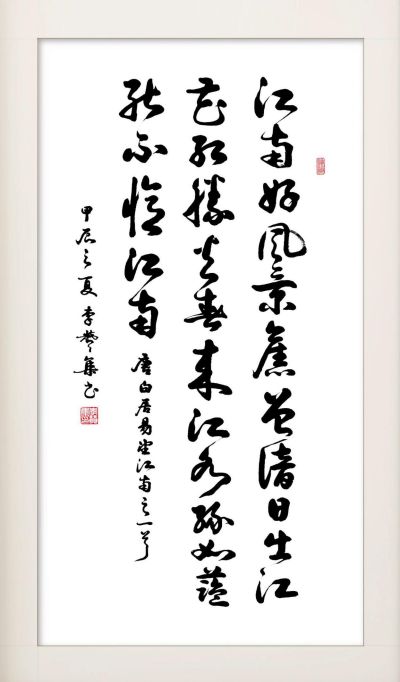 江南好风景旧曾谙日出江
花红胜火春来江水绿如蓝
能不忆江南
唐白居易望江南之一首
甲辰之夏李